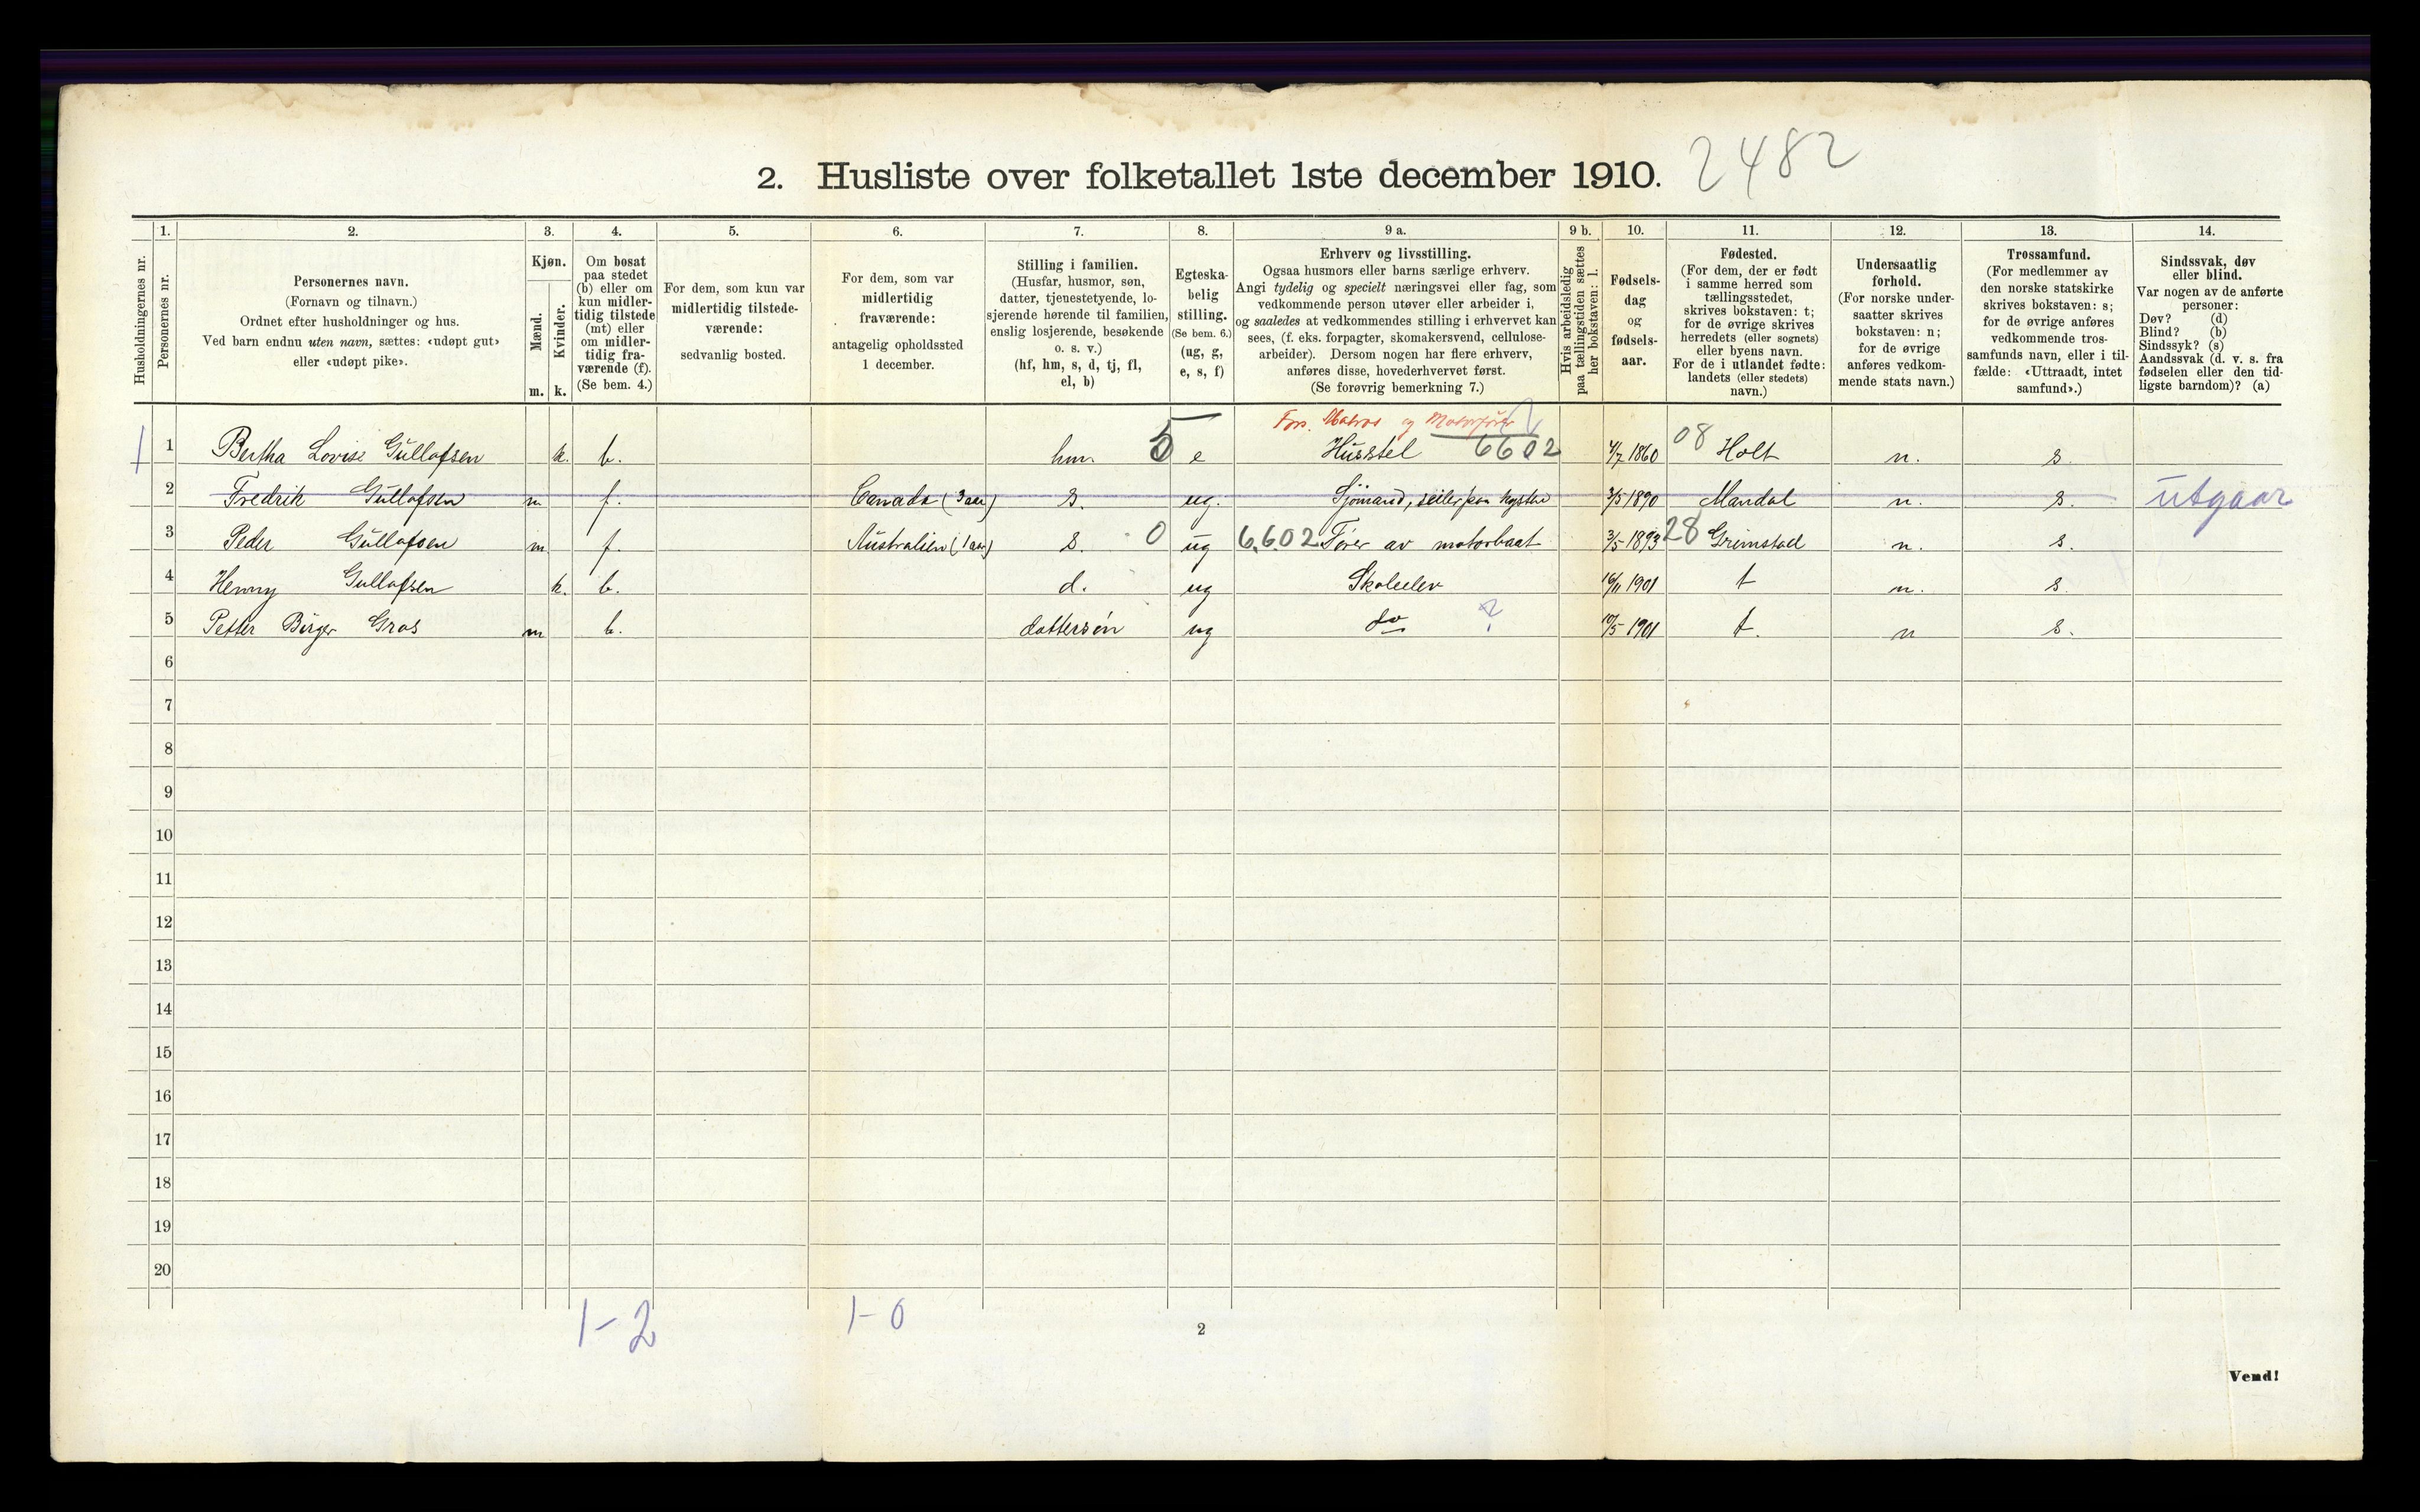 2. Husliste over folketallet 1ste december 1910. 2482
Husholdningernes nr.
1.
Personernes nr.
2.
Personernes navn.
(Fornavn og tilnavn.)
Ordnet efter husholdninger og hus.
Ved barn endnu uten navn, sættes: «udøpt gut»
eller «udøpt pike».
3.
Kjøn.
Mænd.
m.
Kvinder.
k.
4.
Om bosat
paa stedet
(b) eller om
kun midler-
tidig tilstede
(mt) eller
om midler-
tidig fra-
værende (f).
(Se bem. 4.)
5.
For dem, som kun var
midlertidig tilstede-
værende:
sedvanlig bosted.
6.
For dem, som var
midlertidig
fraværende:
antagelig opholdssted
1 december.
7.
Stilling i familien.
(Husfar, husmor, søn,
datter, tjenestetyende, lo-
sjerende hørende til familien,
enslig losjerende, besøkende
o. s. v.)
(hf, hm, s, d, tj, fl,
el, b)
8.
Egteska-
belig
stilling.
(Se bem. 6.)
(ug, g,
e, s, f)
9 a.
Erhverv og livsstilling.
Ogsaa husmors eller barns særlige erhverv.
Angi tydelig og specielt næringsvei eller fag, som
vedkommende person utøver eller arbeider i,
og saaledes at vedkommendes stilling i erhvervet kan
sees, (f. eks. forpagter, skomakersvend, cellulose-
arbeider). Dersom nogen har flere erhverv,
anføres disse, hovederhvervet først.
(Se forøvrig bemerkning 7.)
9 b.
Hvis arbeidsledig
paa tællingstiden sættes
her bokstaven: l.
10.
Fødsels-
dag
og
fødsels-
aar.
11.
Fødested.
(For dem, der er født
i samme herred som
tællingsstedet,
skrives bokstaven: t;
for de øvrige skrives
herredets (eller sognets)
eller byens navn.
For de i utlandet fødte:
landets (eller stedets)
navn.)
12.
Undersaatlig
forhold.
(For norske under-
saatter skrives
bokstaven: n;
for de øvrige
anføres vedkom-
mende stats navn.)
13.
Trossamfund.
(For medlemmer av
den norske statskirke
skrives bokstaven: s;
for de øvrige anføres
vedkommende tros-
samfunds navn, eller i til-
fælde: «Uttraadt, intet
samfund».)
14.
Sindssvak, døv
eller blind.
Var nogen av de anførte
personer:
Døv? (d)
Blind? (b)
Sindssyk? (s)
Aandssvak (d. v. s. fra
fødselen eller den tid-
ligste barndom)? (a)
Fors. Matros og Motorfører
1 1 Bertha Lovise Gullofsen k. b. hm. 5 e Husstel 6602 4/7 1860 08 Holt n. s.
2 Fredrik Gullofsen m f. Canada (3 aar) s. ug. Sjömand, seiler paa kysten 3/5 1890 Mandal n. s. utgaar
3 Peder Gullofsen m f. Australien (1 aar) s. 0 ug 6.602 Fører av motorbaat 3/5 1893 28 Grimstad n. s.
4 Henny Gullofsen k. b. d. ug Skoleelev 16/11 1901 t n. s
5 Petter Birger Gros m b. dattersön ug do ? 10/5 1901 t. n s.
6
7
8
9
10
11
12
13
14
15
16
17
18
19
20
1-2 1-0
2
Vend!